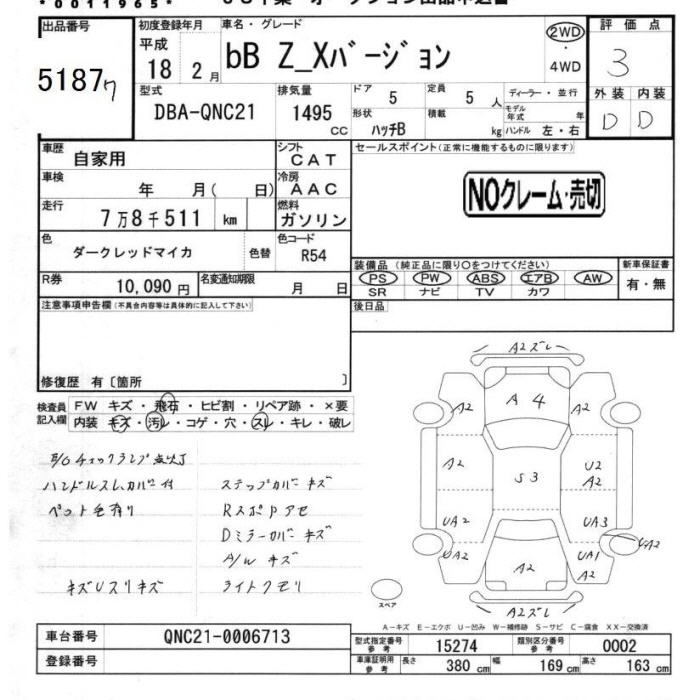 *0011965*
出品番号
5187ワ
初度登録年月
平成
18 2月
車名・グレード
bB Z_Xバージョン
2WD
・
4WD
評価点
3
外装 内装
D D
型式
DBA-QNC21
排気量
1495
CC
ドア
5
定員
5 人
ディーラー・並行
モデル年式 年
形状
ハッチB
積載
kg
ハンドル 左・右
車歴
自家用
シフト
CAT
セールスポイント(正常に機能するものに限ります)
NOクレーム・売切
車検
年 月( 日)
冷房
AAC
走行
7万8千511 km
燃料
ガソリン
色
ダークレッドマイカ
色替
色コード
R54
装備品(純正品に限り○をつけてください)
PS PW ABS エアB AW
SR ナビ TV カワ
新車保証書
有・無
R券
10,090円
名変通知期限
月 日
後日品
注意事項申告欄(不具合内容等は具体的に記入して下さい)
修復歴 有〔箇所 〕
検査員記入欄
FW キズ・飛石・ヒビ割・リペア跡・×要
内装 キズ・汚レ・コゲ・穴・スレ・キレ・破レ
E/Gチェックランプ点灯
ハンドルスレ、カバー付
ペット毛有り
キズUスリキズ
ステップカバーキズ
RスポPアセ
Dミラーカバーキズ
A/Wキズ
ライトクモリ
A2ズレ
A4
A2
A2
A2
S3
U2
A2
UA2
UA3
UA2
UA2
UA1
A2
A2
A2ズレ
スペア
A-キズ E-エクボ U-凹み W-補修跡 S-サビ C-腐食 XX-交換済
車台番号
QNC21-0006713
登録番号
型式指定番号
参考
15274
類別区分番号
参考
0002
車庫証明用
参考
長さ 380 cm
幅 169 cm
高さ 163 cm